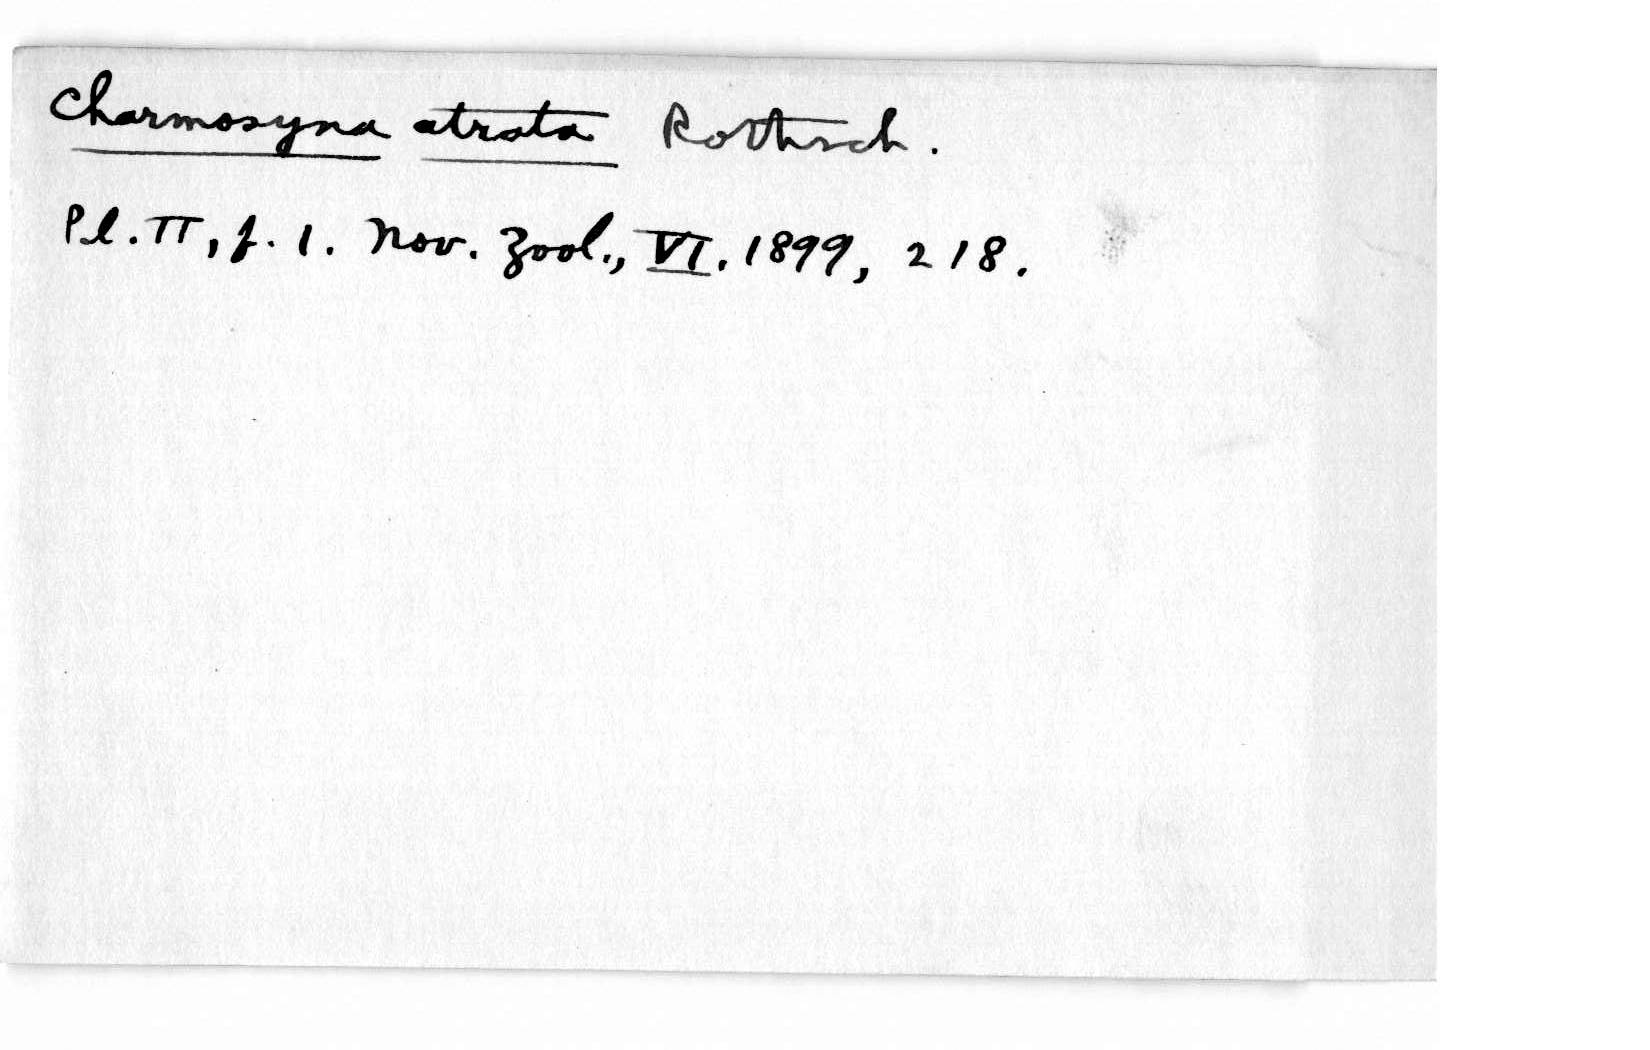 Charmosyna atrata Rothsch.
Pl. II, f. 1. Nov. Zool., VI. 1899, 218.